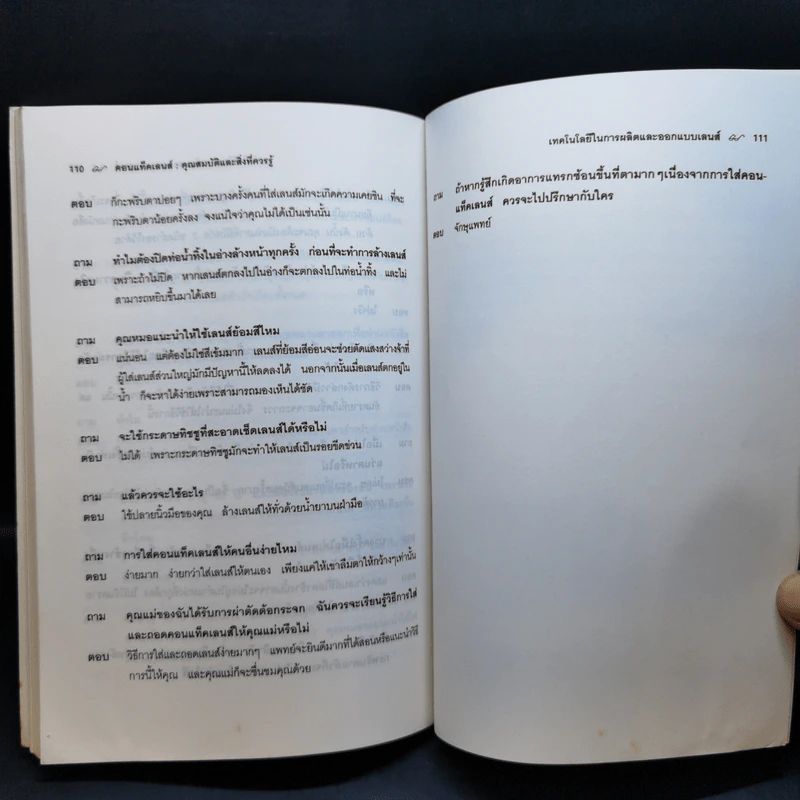 110 คอนแท็คเลนส์ : คุณสมบัติและสิ่งที่ควรรู้
ตอบ ก็กะพริบตาบ่อยๆ เพราะบางครั้งคนที่ใส่เลนส์มักจะเกิดความเคยชิน ที่จะ
กะพริบตาน้อยครั้งลง จงแน่ใจว่าคุณไม่ได้เป็นเช่นนั้น
ถาม ทำไมต้องปิดท่อน้ำทิ้งในอ่างล้างหน้าทุกครั้ง ก่อนที่จะทำการล้างเลนส์
ตอบ เพราะถ้าไม่ปิด หากเลนส์ตกลงไปในอ่างก็จะตกลงไปในท่อน้ำทิ้ง และไม่
สามารถหยิบขึ้นมาได้เลย
ถาม คุณหมอแนะนำให้ใช้เลนส์ย้อมสีไหม
ตอบ แน่นอน แต่ต้องไม่ใช่สีเข้มมาก เลนส์ที่ย้อมสีอ่อนจะช่วยตัดแสงสว่างจ้าที่
ผู้ใส่เลนส์ส่วนใหญ่มักมีปัญหานี้ให้ลดลงได้ นอกจากนั้นเมื่อเลนส์ตกอยู่ใน
น้ำ ก็จะหาได้ง่ายเพราะสามารถมองเห็นได้ชัด
ถาม จะใช้กระดาษทิชชูที่สะอาดเช็ดเลนส์ได้หรือไม่
ตอบ ไม่ได้ เพราะกระดาษทิชชูมักจะทำให้เลนส์เป็นรอยขีดข่วน
ถาม แล้วควรจะใช้อะไร
ตอบ ใช้ปลายนิ้วมือของคุณ ล้างเลนส์ให้ทั่วด้วยน้ำยาบนฝ่ามือ
ถาม การใส่คอนแท็คเลนส์ให้คนอื่นง่ายไหม
ตอบ ง่ายมาก ง่ายกว่าใส่เลนส์ให้ตนเอง เพียงแค่ให้เขาลืมตาให้กว้างๆเท่านั้น
ถาม คุณแม่ของฉันได้รับการผ่าตัดต้อกระจก ฉันควรจะเรียนรู้วิธีการใส่
และถอดคอนแท็คเลนส์ให้คุณแม่หรือไม่
ตอบ วิธีการใส่และถอดเลนส์ง่ายมากๆ แพทย์จะยินดีมากที่ได้สอนหรือแนะนำวิธี
การนี้ให้คุณ และคุณแม่ก็จะชื่นชมคุณด้วย
เทคโนโลยีในการผลิตและออกแบบเลนส์ 111
ถาม ถ้าหากรู้สึกเกิดอาการแทรกซ้อนขึ้นที่ตามากๆเนื่องจากการใส่คอน-
แท็คเลนส์ ควรจะไปปรึกษากับใคร
ตอบ จักษุแพทย์